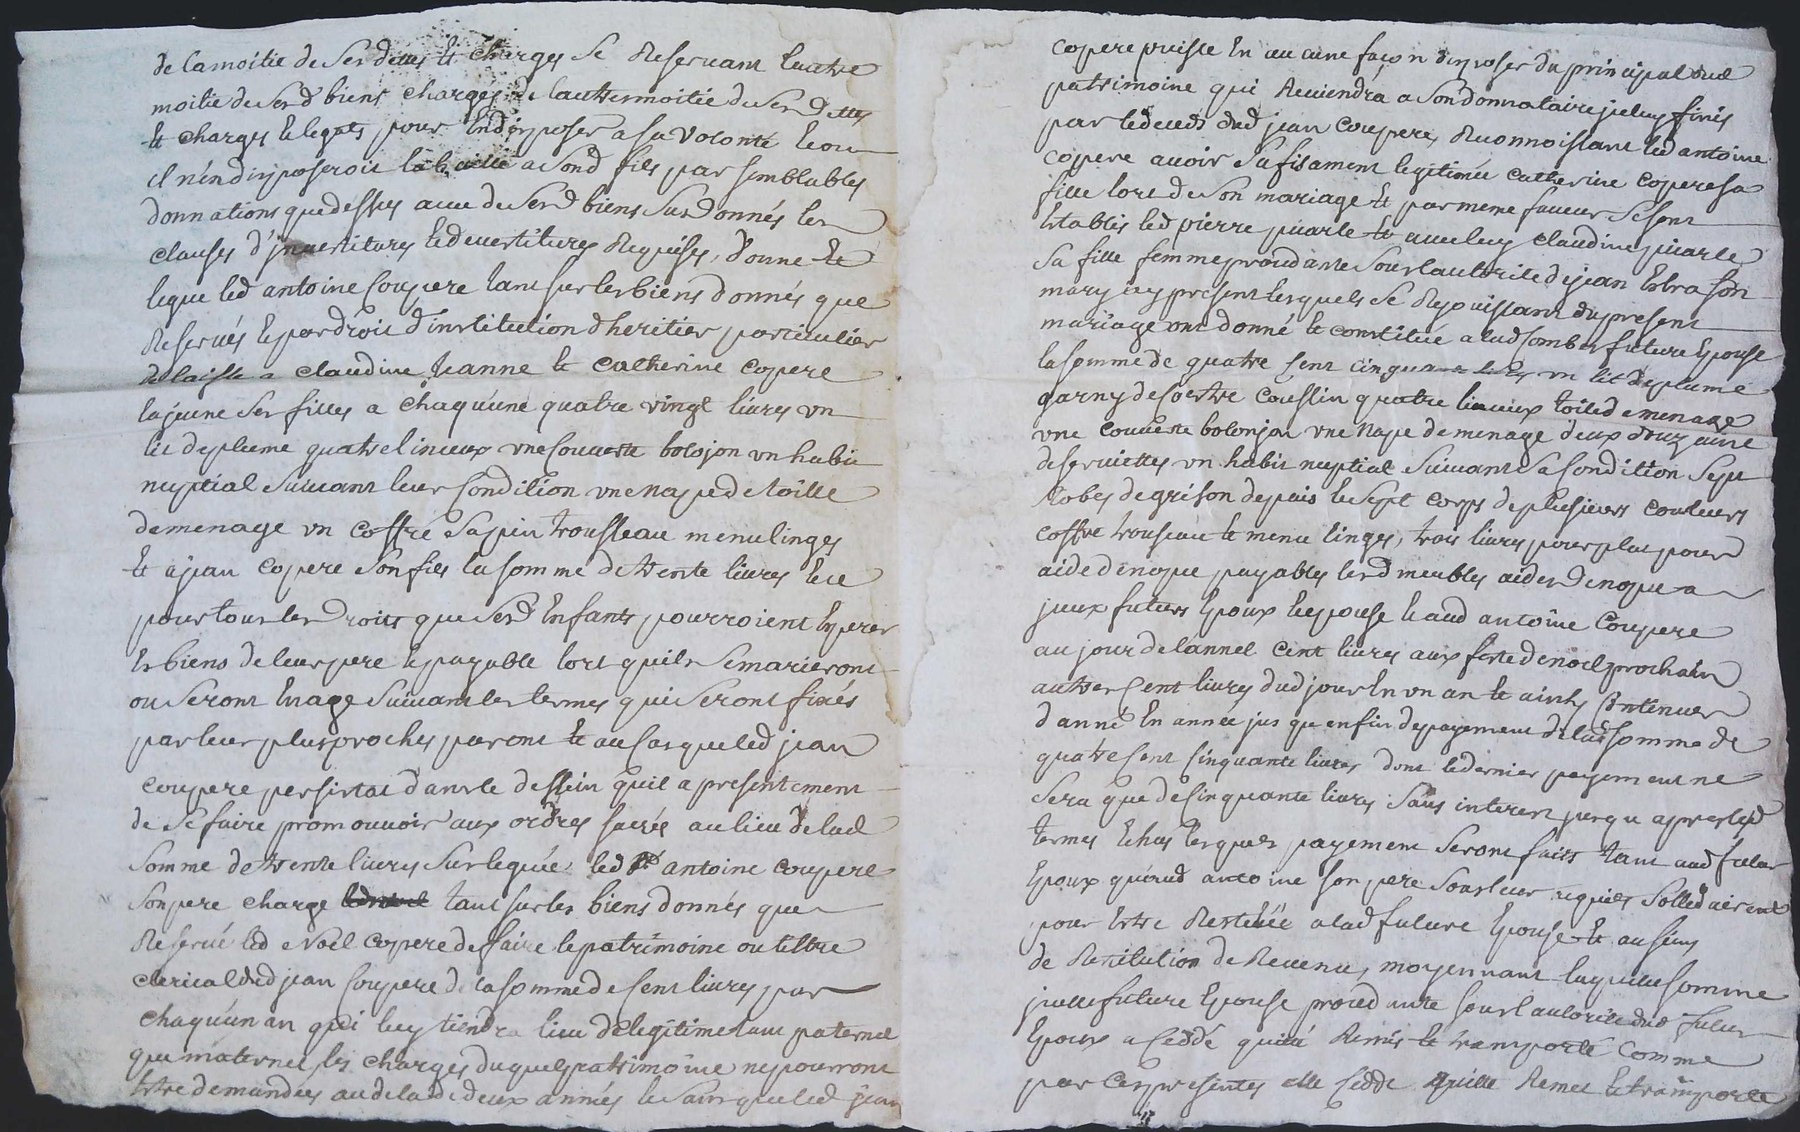 de la moitié de ses dettes et charges se Reservant l'autre
moitié de sesd biens chargés de lautre moitié de sesd dettes
et charges et legats pour En disposer a sa volonté Et ou
il n'en disposeroit la baille a sond fils par semblables
donnations que dessus avec de sesd biens susdonnés les
clauses d'jnvestitures et devestitures Requises, donne et
legue led antoine Coupere tant sur les biens donnés que
Reservés et par droit d'institution d'heritier particulier
delaisse a claudine Jeanne et Catherine Copere
la jeune ses filles a chaqu'une quatre vingt livres un
lit de plume quatre linceux une Couverte bolojon un habit
nuptial suivant leur Condition une nappe de toille
de menage un coffre sapin trousseau menu linges
et a jean Copere son fils la somme de trente livres et ce
pour tous les droits que sesd Enfants pourroient Esperer
Es biens de leur pere et payable lors quils se marieront
ou seront En age suivant les termes qui seront fixés
par leur plus proches parent et au cas que led jean
Coupere persistat dans le dessein quil a presentement
de se faire promouvoir aux ordres sacrés au lieu de lad
somme de trente livres sur leguée led antoine Coupere
son pere charge tant sur les biens donnés que
Reservé led noël copere de faire le patrimoine ou tiltre
clerical dud jean Coupere de la somme de Cent livres par
chaqu'un an qui luy tiendra lieu de legitime tant paternel
que maternel les charges du quel patrimoine ne pourront
Estre demandées au dela de deux années et sans que led jean
Copere puisse En aucune façon disposer du principal dud
patrimoine qui Reviendra a son donnataire jceluy finis
par le deceds dud jean Coupere, Reconnoissant led antoine
Copere avoir suffisament legitimée Catherine Copere sa
fille lors de son mariage et par meme faveur se sont
Establis led pierre piarle et avec luy claudine piarle
sa fille femme procedante sous lautorité de jean Esbra son
mary jcy present lesquels se Rejouissant du present
mariage ont donné et constitué a lad Combes future Epouse
la somme de quatre Cent cinquante livres un lit de plume
garny de Coetre Coussin quatre linceux toile de menage
une couverte bolonjon une nape de menage deux douzaine
de serviettes un habit nuptial suivant sa Condition sept
Robes de grison depuis Et sept corps de plusieurs couleurs
coffre trousseau et menu linges, trois livres pour plat pour
aide de nopce payables lesd meubles aides de nopce a
jceux futurs Epoux Et epouse Et aud antoine Coupere
au jour de lannel Cent livres aux feste de noel prochain
autres Cent livres dud jour En un an et ainsy Continuer
d'anné En année jus qu enfin de payement de lad somme de
quatre Cent Cinquante livres dont le dernier payement ne
sera que de Cinquante livres sans interest jusqu apres lesd
termes Echus lesquels payement seront faits tant aud futur
Epoux qu'aud antoine son pere sous leur aquits sollidairent
pour Estre Restituée a lad future Epouse et au siens
de Restitution de Revenu, moyennant laquelle somme
jcelle future Epouse procedante sous l'autorité dud futur
Epoux a Ceddé quitté Remis et transporté Comme
par Ces presentes elle Cedde Quitte Remet et transporte